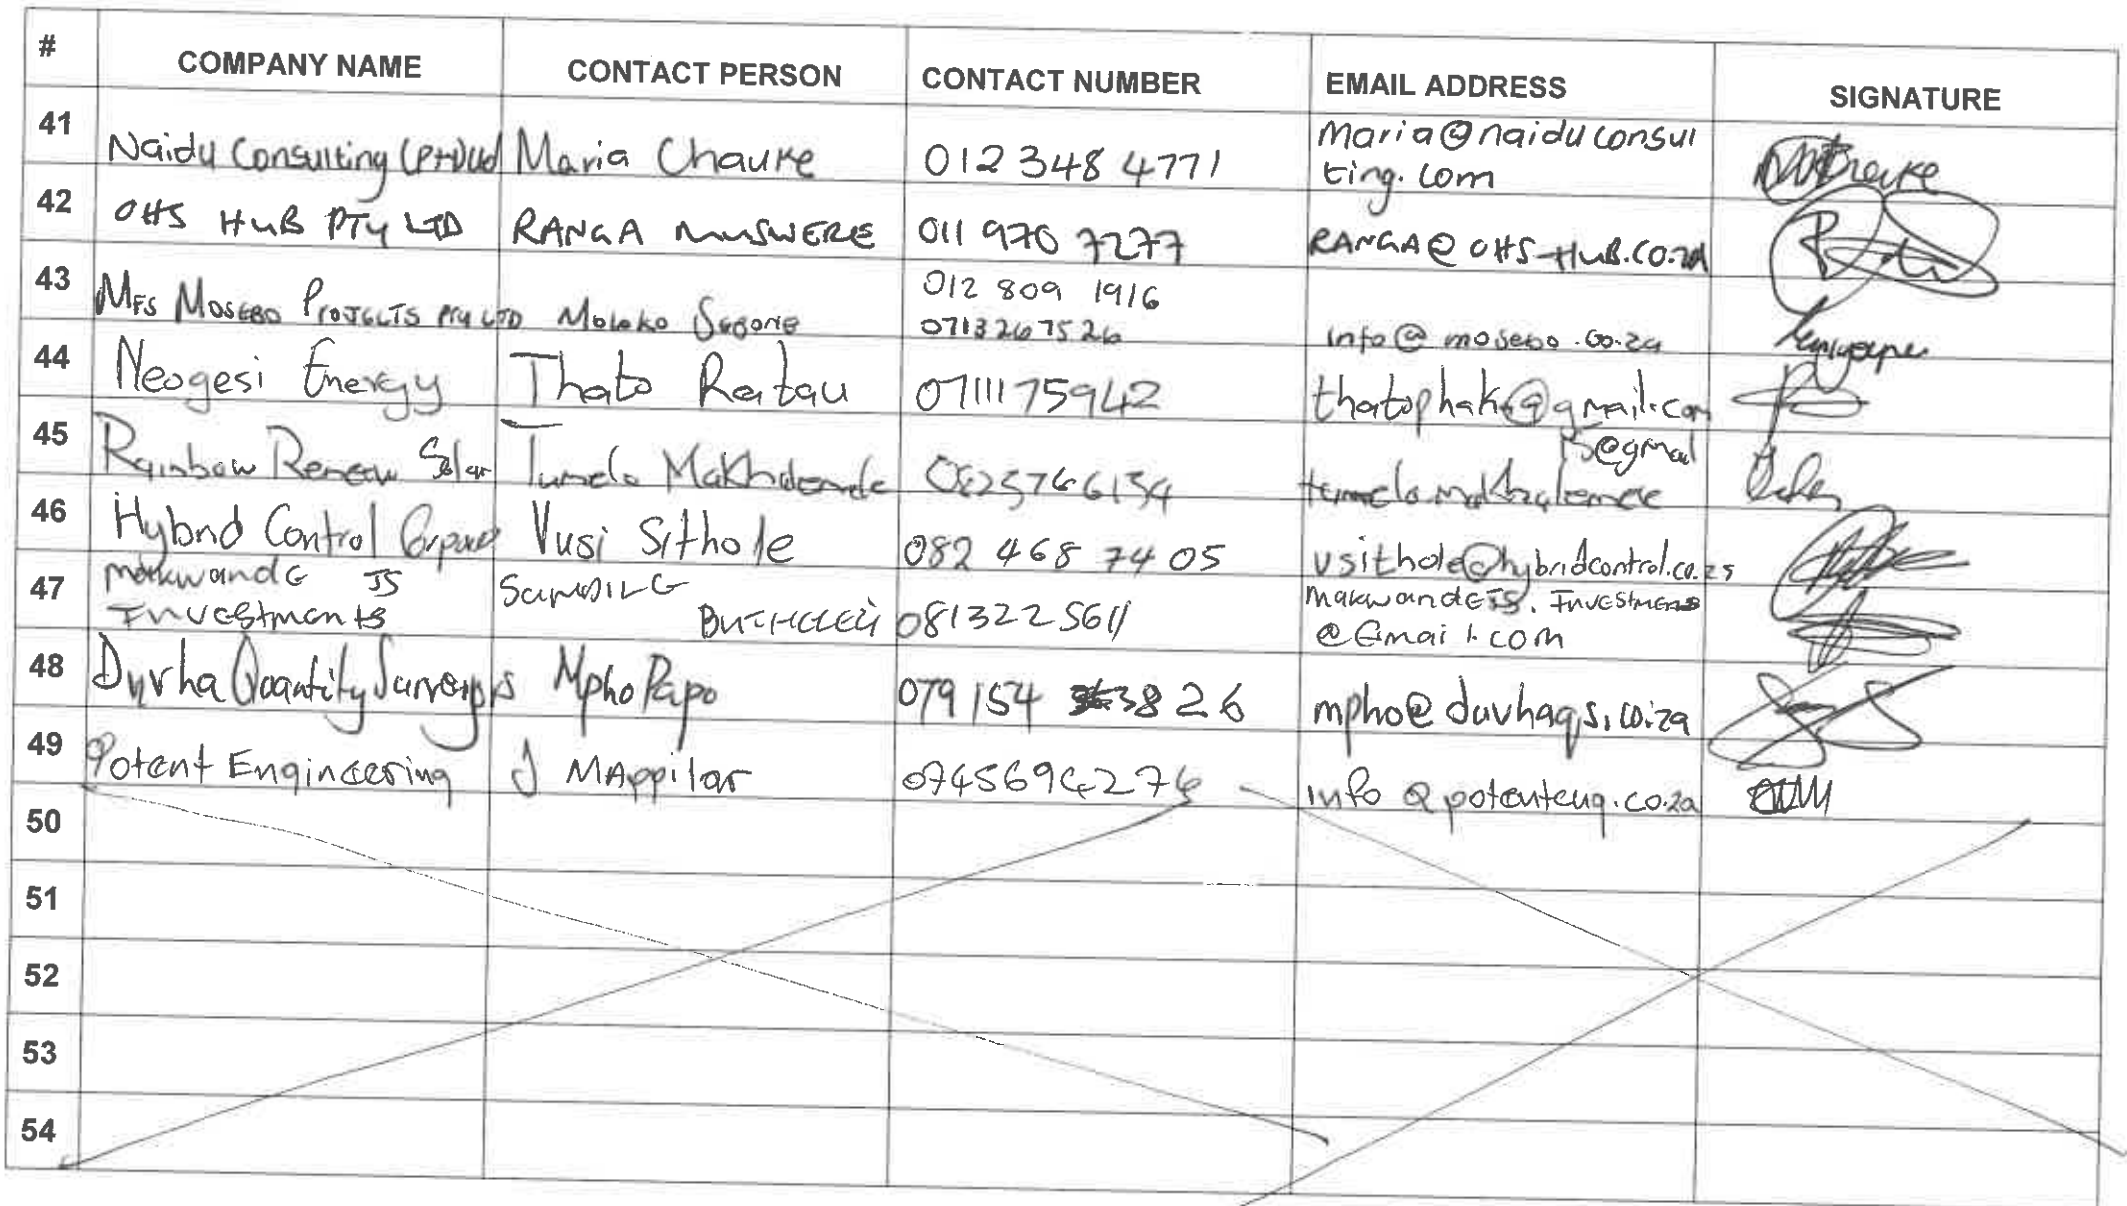 # COMPANY NAME CONTACT PERSON CONTACT NUMBER EMAIL ADDRESS SIGNATURE
41 Naidu Consulting (Pty)Ltd Maria Chauke 012 348 4771 maria@naiduconsul
ting.com
42 OHS HUB PTY LTD RANGA MUSWERE 011 970 7277 RANGA@OHS-HUB.CO.ZA
43 MFS MOSEBO PROJECTS PTY LTD 012 809 1916
0713267526 info@mosebo.co.za
44 Neogesi Energy Thato Ratau 0711175942
45 Rainbow Renew Solar Tumelo
46 Hybrid Control Vusi Sithole 082 468 7405 vsithole@hybridcontrol.co.za
47 Makwande JS
Investments 0813225611 MakwandeJS.Investments
@Gmail.com
48 Duvha Quantity Surveyors Mpho Papo 079 154 3826 mpho@duvhaqs.co.za
49 Potent Engineering J MAppilar info@potenteng.co.za
50
51
52
53
54